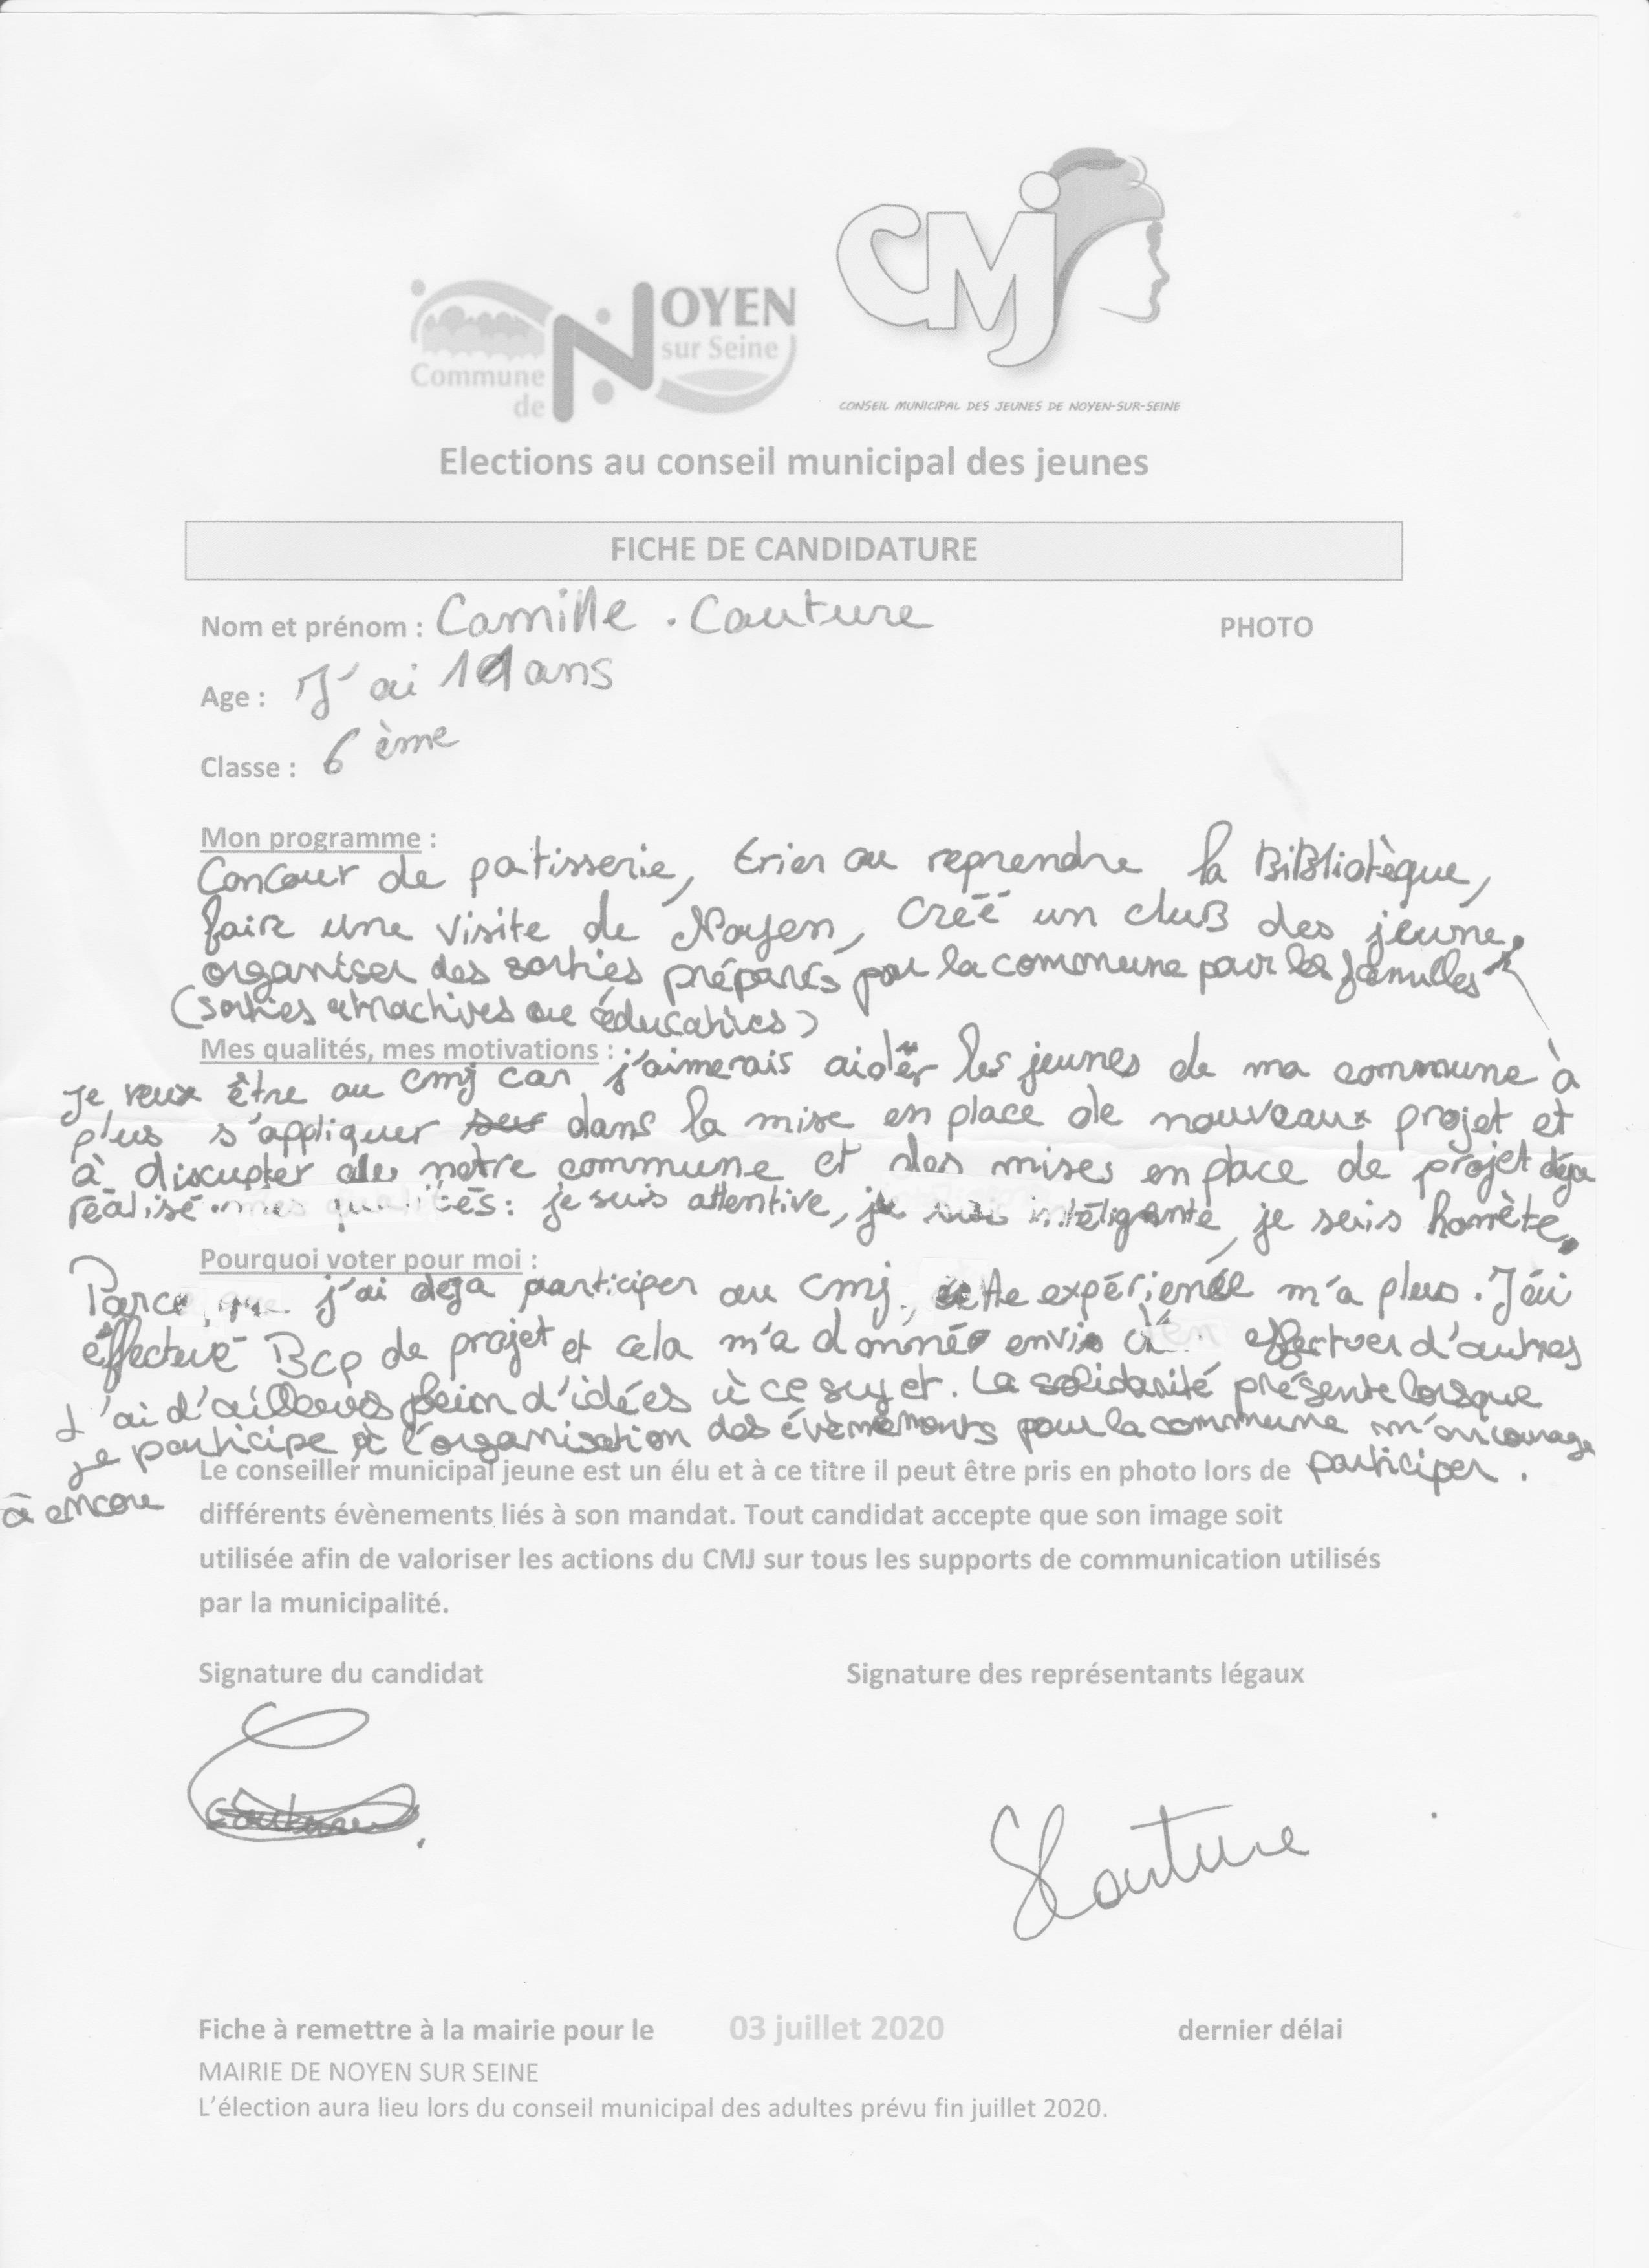 NOYEN
sur Seine
Commune
de
CMJ
CONSEIL MUNICIPAL DES JEUNES DE NOYEN-SUR-SEINE
Elections au conseil municipal des jeunes
FICHE DE CANDIDATURE
Nom et prénom : Camille . Couture
PHOTO
Age : J'ai 11 ans
Classe : 6 ème
Mon programme :
Concour de patisserie, trier ou reprendre la BiBliotèque,
fair une visite de Noyen, créé un cluB des jeune,
organiser des sorties préparés par la commune pour les familles
(sorties attractives ou éducatives)
Mes qualités, mes motivations : j'aimerais aider les jeunes de ma commune à
je veux être au cmj car
plus s'appliquer sur dans la mise en place de nouveaux projet et
à discupter de notre commune et des mises en place de projet déja
réalisé. mes qualités : je suis attentive, je suis intéligente, je suis honnète.
Pourquoi voter pour moi :
Parce que j'ai déja participer au cmj, cette expérience m'a plus. J'ai
éffectué Bcp de projet et cela m'a donné envie d'en effectuer d'autres
J'ai d'ailleurs plein d'idées à ce sujet. La solidarité présente lorsque
je participe à l'organisation des évènements pour la commune m'encourage
à encore participer.
Le conseiller municipal jeune est un élu et à ce titre il peut être pris en photo lors de
différents évènements liés à son mandat. Tout candidat accepte que son image soit
utilisée afin de valoriser les actions du CMJ sur tous les supports de communication utilisés
par la municipalité.
Signature du candidat
Signature des représentants légaux
Couture
SCouture
Fiche à remettre à la mairie pour le 03 juillet 2020 dernier délai
MAIRIE DE NOYEN SUR SEINE
L'élection aura lieu lors du conseil municipal des adultes prévu fin juillet 2020.